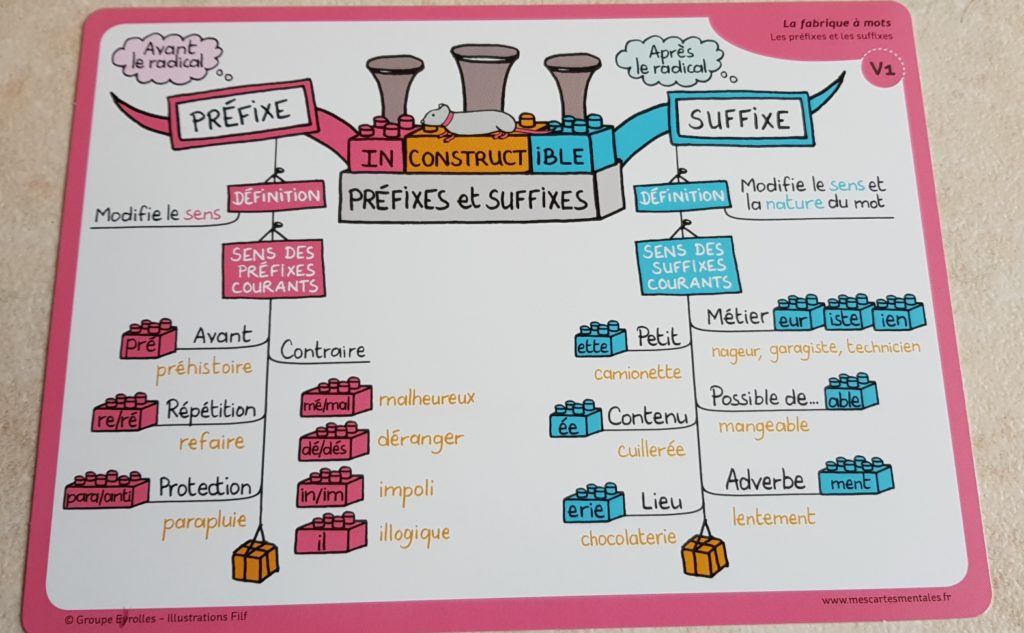 La fabrique à mots
Les préfixes et les suffixes
V1
Avant
le radical
PRÉFiXE
Après
le radical
SUFFiXE
IN CONSTRUCT iBLE
PRÉFiXES et SUFFiXES
DÉFiNiTiON
Modifie le sens
SENS DES
PRÉFiXES
COURANTS
pré Avant
préhistoire
re/ré Répétition
refaire
para/anti Protection
parapluie
Contraire
mé/mal malheureux
dé/dés déranger
in/im impoli
il illogique
DÉFiNiTiON
Modifie le sens et
la nature du mot
SENS DES
SUFFiXES
COURANTS
ette Petit
camionette
ée Contenu
cuillerée
erie Lieu
chocolaterie
Métier eur iste ien
nageur, garagiste, technicien
Possible de... able
mangeable
Adverbe ment
lentement
© Groupe Eyrolles – Illustrations Filf
www.mescartesmentales.fr